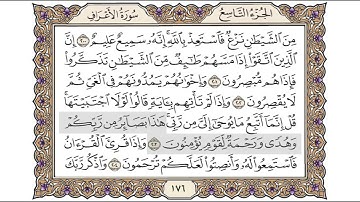 الجزء التاسع
سورة الأعراف
مِنَ ٱلشَّيْطَٰنِ نَزْغٌ فَٱسْتَعِذْ بِٱللَّهِ إِنَّهُۥ سَمِيعٌ عَلِيمٌ ٢٠٠ إِنَّ
ٱلَّذِينَ ٱتَّقَوْا۟ إِذَا مَسَّهُمْ طَٰٓئِفٌ مِّنَ ٱلشَّيْطَٰنِ تَذَكَّرُوا۟
فَإِذَا هُم مُّبْصِرُونَ ٢٠١ وَإِخْوَٰنُهُمْ يَمُدُّونَهُمْ فِى ٱلْغَىِّ ثُمَّ
لَا يُقْصِرُونَ ٢٠٢ وَإِذَا لَمْ تَأْتِهِم بِـَٔايَةٍ قَالُوا۟ لَوْلَا ٱجْتَبَيْتَهَا
قُلْ إِنَّمَآ أَتَّبِعُ مَا يُوحَىٰٓ إِلَىَّ مِن رَّبِّى هَٰذَا بَصَآئِرُ مِن رَّبِّكُمْ
وَهُدًى وَرَحْمَةٌ لِّقَوْمٍ يُؤْمِنُونَ ٢٠٣ وَإِذَا قُرِئَ ٱلْقُرْءَانُ
فَٱسْتَمِعُوا۟ لَهُۥ وَأَنصِتُوا۟ لَعَلَّكُمْ تُرْحَمُونَ ٢٠٤ وَٱذْكُر رَّبَّكَ
١٧٦